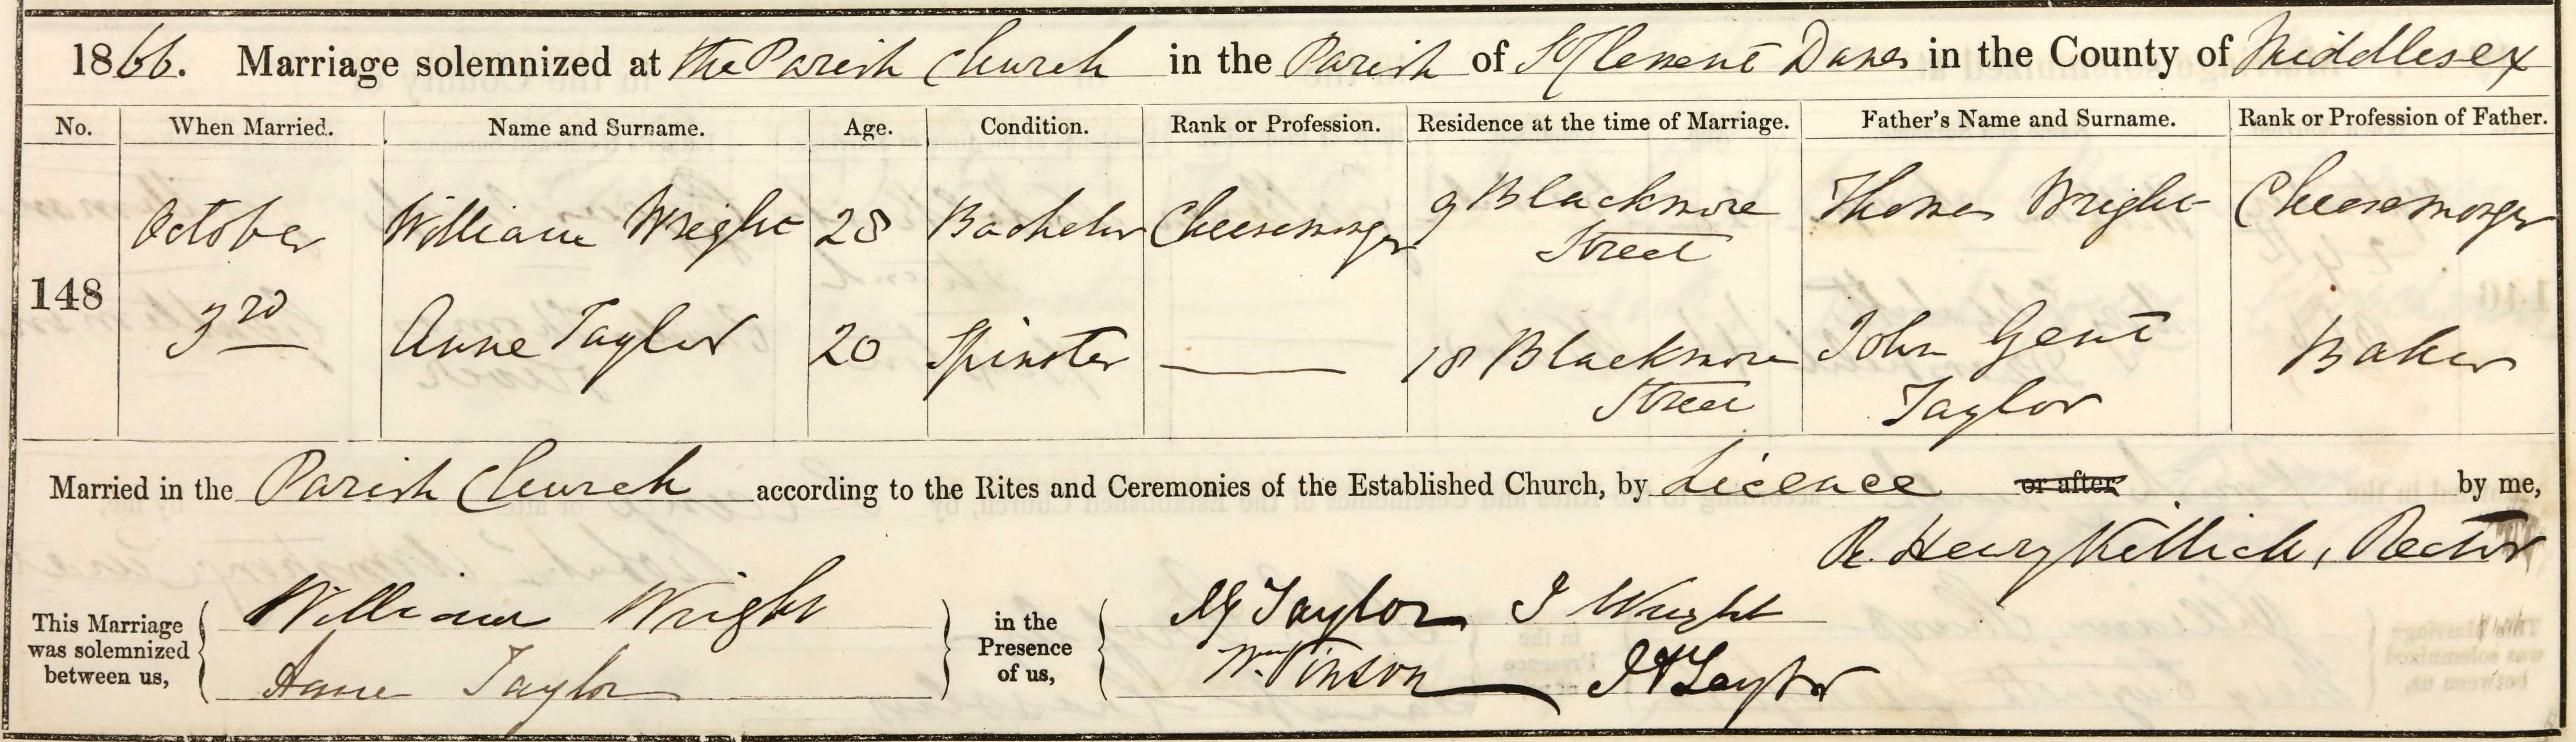 1866. Marriage solemnized at the Parish Church in the Parish of St Clement Danes in the County of Middlesex
No. When Married. Name and Surname. Age. Condition. Rank or Profession. Residence at the time of Marriage. Father's Name and Surname. Rank or Profession of Father.
148 October William Wright 28 Bachelor Cheesemonger 9 Blackmore Street Thomas Wright Cheesemonger
3rd Anne Taylor 20 Spinster 18 Blackmore Street John Gent Taylor Baker
Married in the Parish Church according to the Rites and Ceremonies of the Established Church, by Licence or after by me,
R. Henry Killick, Rector
This Marriage was solemnized between us, William Wright Anne Taylor in the Presence of us, Taylor J Wright
Wm Vinson Taylor